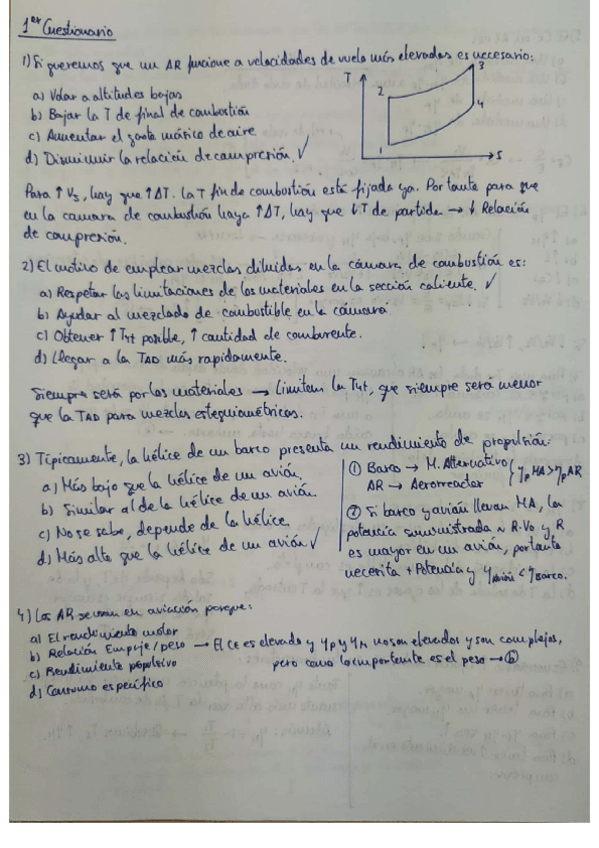 1er Cuestionario
1) Si queremos que un AR funcione a velocidades de vuelo más elevadas es necesario:
a) Volar a altitudes bajas
b) Bajar la T de final de combustión
c) Aumentar el gasto másico de aire
d) Disminuir la relación de compresión ✓
T
2
3
4
1
s
Para ↑ Vs, hay que ↑ΔT. La T fin de combustión está fijada ya. Por tanto para que
en la cámara de combustión haya ↑ΔT, hay que ↓T de partida → ↓ Relación
de compresión.
2) El motivo de emplear mezclas diluidas en la cámara de combustión es:
a) Respetar las limitaciones de los materiales en la sección caliente. ✓
b) Ayudar al mezclado de combustible en la cámara
c) Obtener ↑ T4t posible, ↑ cantidad de comburente.
d) Llegar a la TAD más rapidamente.
Siempre será por los materiales → Limitem la T4t, que siempre será menor
que la TAD para mezclas estequiométricas.
3) Típicamente, la hélice de un barco presenta un rendimiento de propulsión:
a) Más bajo que la hélice de un avión.
b) Similar al de la hélice de un avión.
c) No se sabe, depende de la hélice
d) Más alto que la hélice de un avión ✓
① Barco → M. Alternativo
AR → Aerorreador
ηp MA > ηp AR
② Si barco y avión llevan MA, la
potencia suministrada ~ R·V0 y R
es mayor en un avión, por tanto
necesita + Potencia y ηavión < ηbarco.
4) Los AR se usan en aviación porque:
a) El rendimiento motor
b) Relación Empuje/peso → El CE es elevado y ηp y ηm no son elevados y son complejos,
pero como lo importante es el peso → ⓑ
c) Rendimiento propulsivo
d) Consumo específico